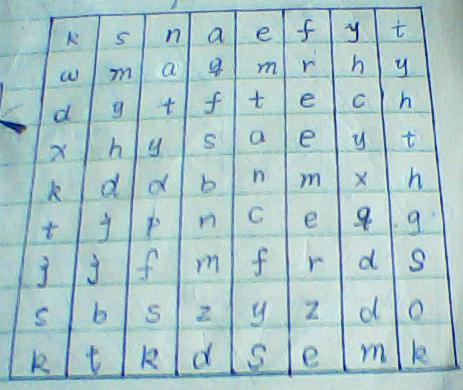 k s n a e f y t
w m a q m r h y
d y t f t e c h
x h y s a e y t
k d d b n m x h
t j p n c e q g
j j f m f r d s
s b s z y z d o
k t k d s e m k